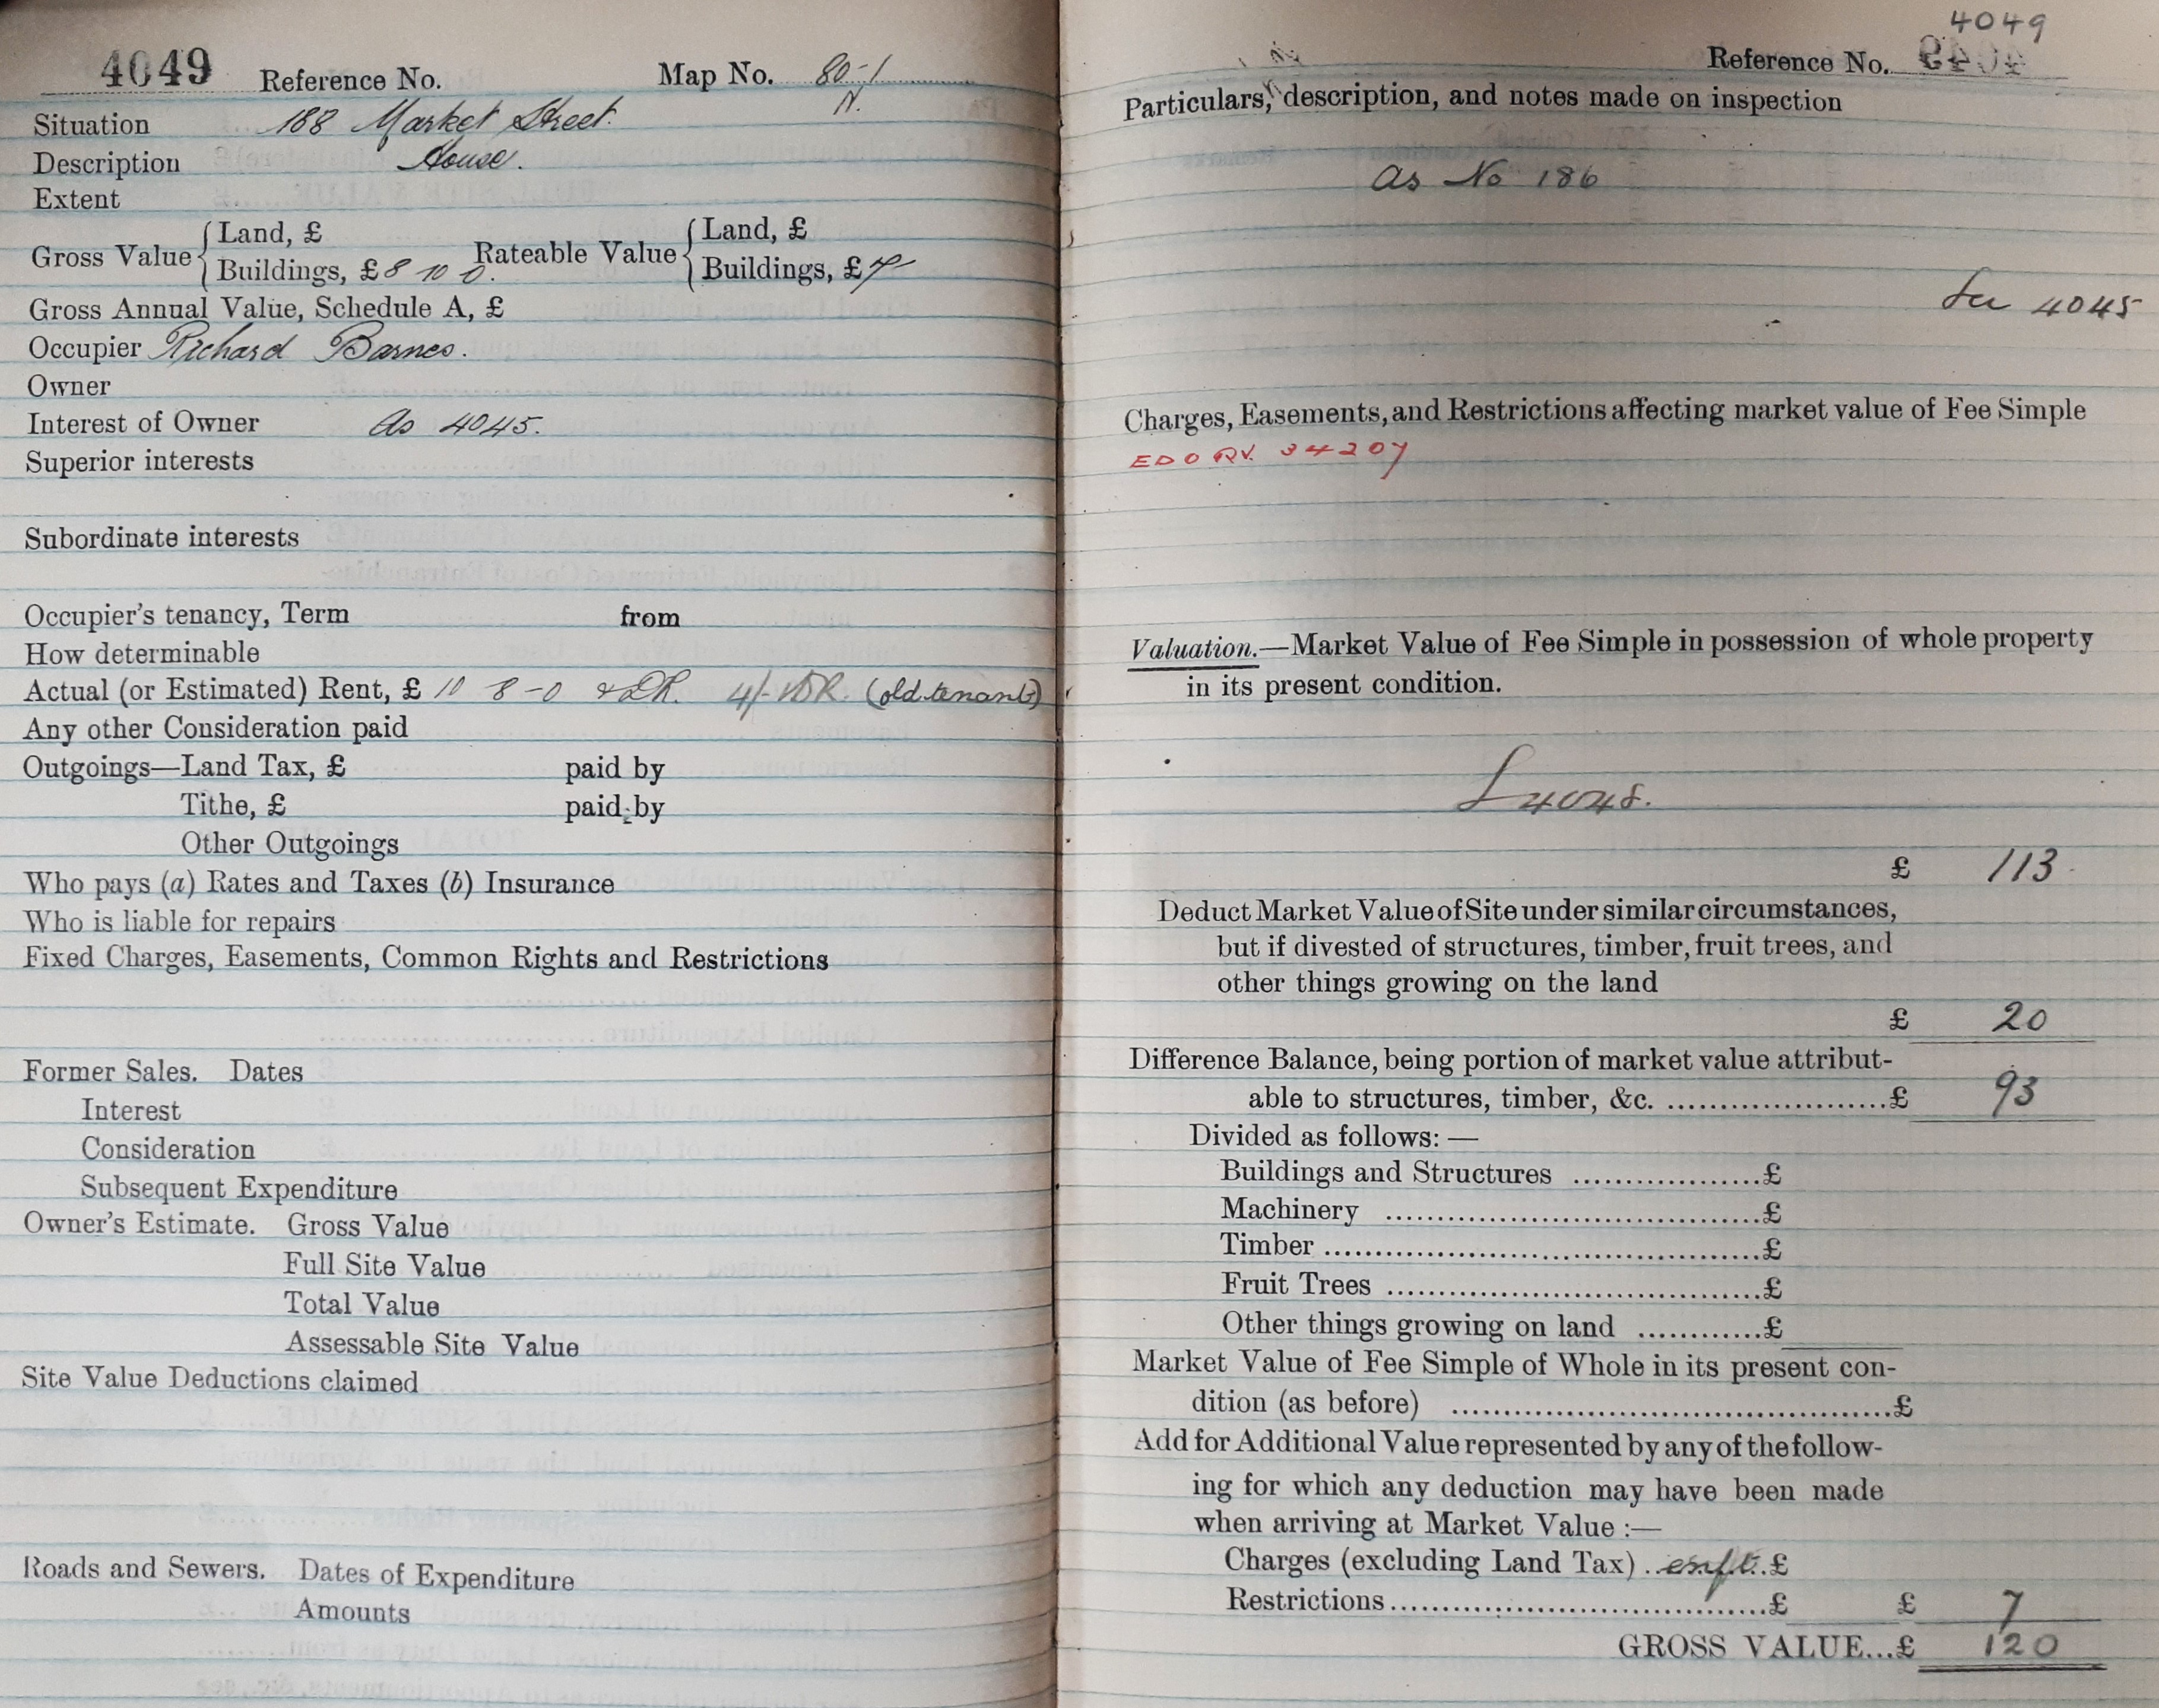 4049 Reference No. Map No. 80-1
N.
Situation 188 Market Street.
Description House.
Extent
Gross Value { Land, £
Buildings, £ 8 10 0.
Rateable Value { Land, £
Buildings, £ 7/-
Gross Annual Value, Schedule A, £
Occupier Richard Barnes.
Owner
Interest of Owner As 4045.
Superior interests
Subordinate interests
Occupier's tenancy, Term from
How determinable
Actual (or Estimated) Rent, £ 10 8-0 & DR. 4/- DR. (old tenants)
Any other Consideration paid
Outgoings—Land Tax, £ paid by
Tithe, £ paid by
Other Outgoings
Who pays (a) Rates and Taxes (b) Insurance
Who is liable for repairs
Fixed Charges, Easements, Common Rights and Restrictions
Former Sales. Dates
Interest
Consideration
Subsequent Expenditure
Owner's Estimate. Gross Value
Full Site Value
Total Value
Assessable Site Value
Site Value Deductions claimed
Roads and Sewers. Dates of Expenditure
Amounts
4049
Reference No.
Particulars, description, and notes made on inspection
as No 186
See 4045
Charges, Easements, and Restrictions affecting market value of Fee Simple
EDO RV. 34207
Valuation.—Market Value of Fee Simple in possession of whole property
in its present condition.
4048.
£ 113
Deduct Market Value of Site under similar circumstances,
but if divested of structures, timber, fruit trees, and
other things growing on the land
£ 20
Difference Balance, being portion of market value attribut-
able to structures, timber, &c. ......................£ 93
Divided as follows: —
Buildings and Structures ...................£
Machinery ......................................£
Timber ............................................£
Fruit Trees ......................................£
Other things growing on land ............£
Market Value of Fee Simple of Whole in its present con-
dition (as before) ............................................£
Add for Additional Value represented by any of the follow-
ing for which any deduction may have been made
when arriving at Market Value :—
Charges (excluding Land Tax) .. £
Restrictions ......................................£ £ 7
GROSS VALUE...£ 120